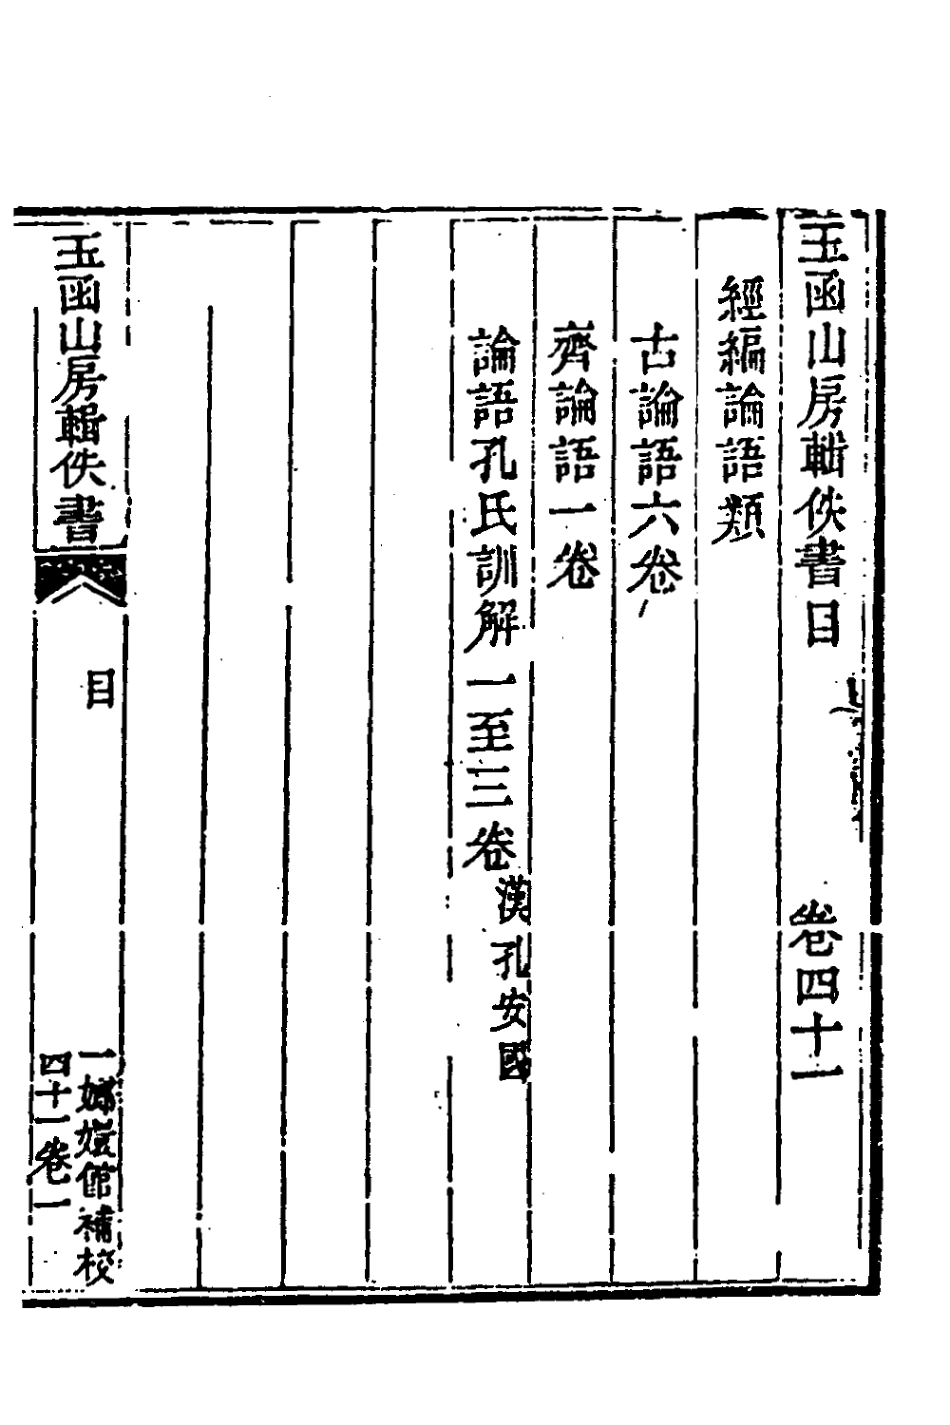 玉函山房輯佚書目　卷四十一
經編論語類
古論語六卷
齊論語一卷
論語孔氏訓解一至三卷漢孔安國
玉函山房輯佚書
目
一嫏嬛館補校
四十一卷一